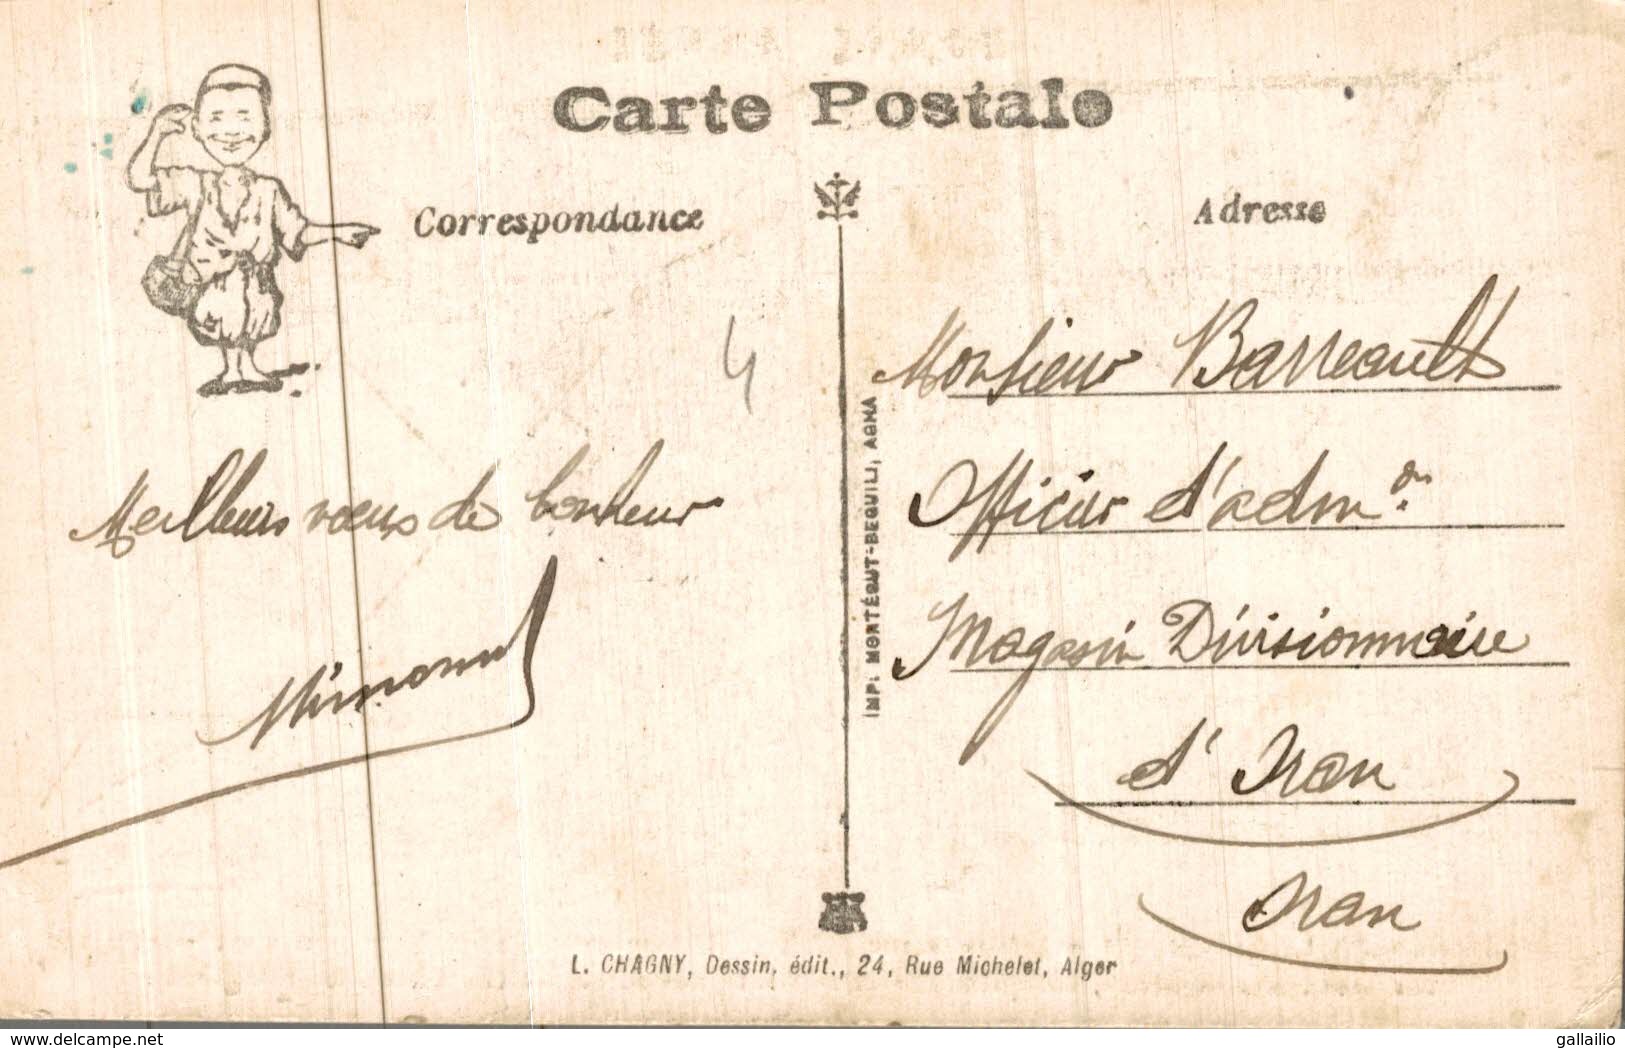 Carte Postale
Correspondance
Adresse
4
Meilleurs vœux de bonheur
Monsieur Barreault
Officier d'adm.on
Magasin Divisionnaire
d'Oran
Oran
IMP. MONTÉGUT-DEGUILI, AGHA
L. CHAGNY, Dessin. édit., 24, Rue Michelet, Alger
www.delcampe.net
gallailio